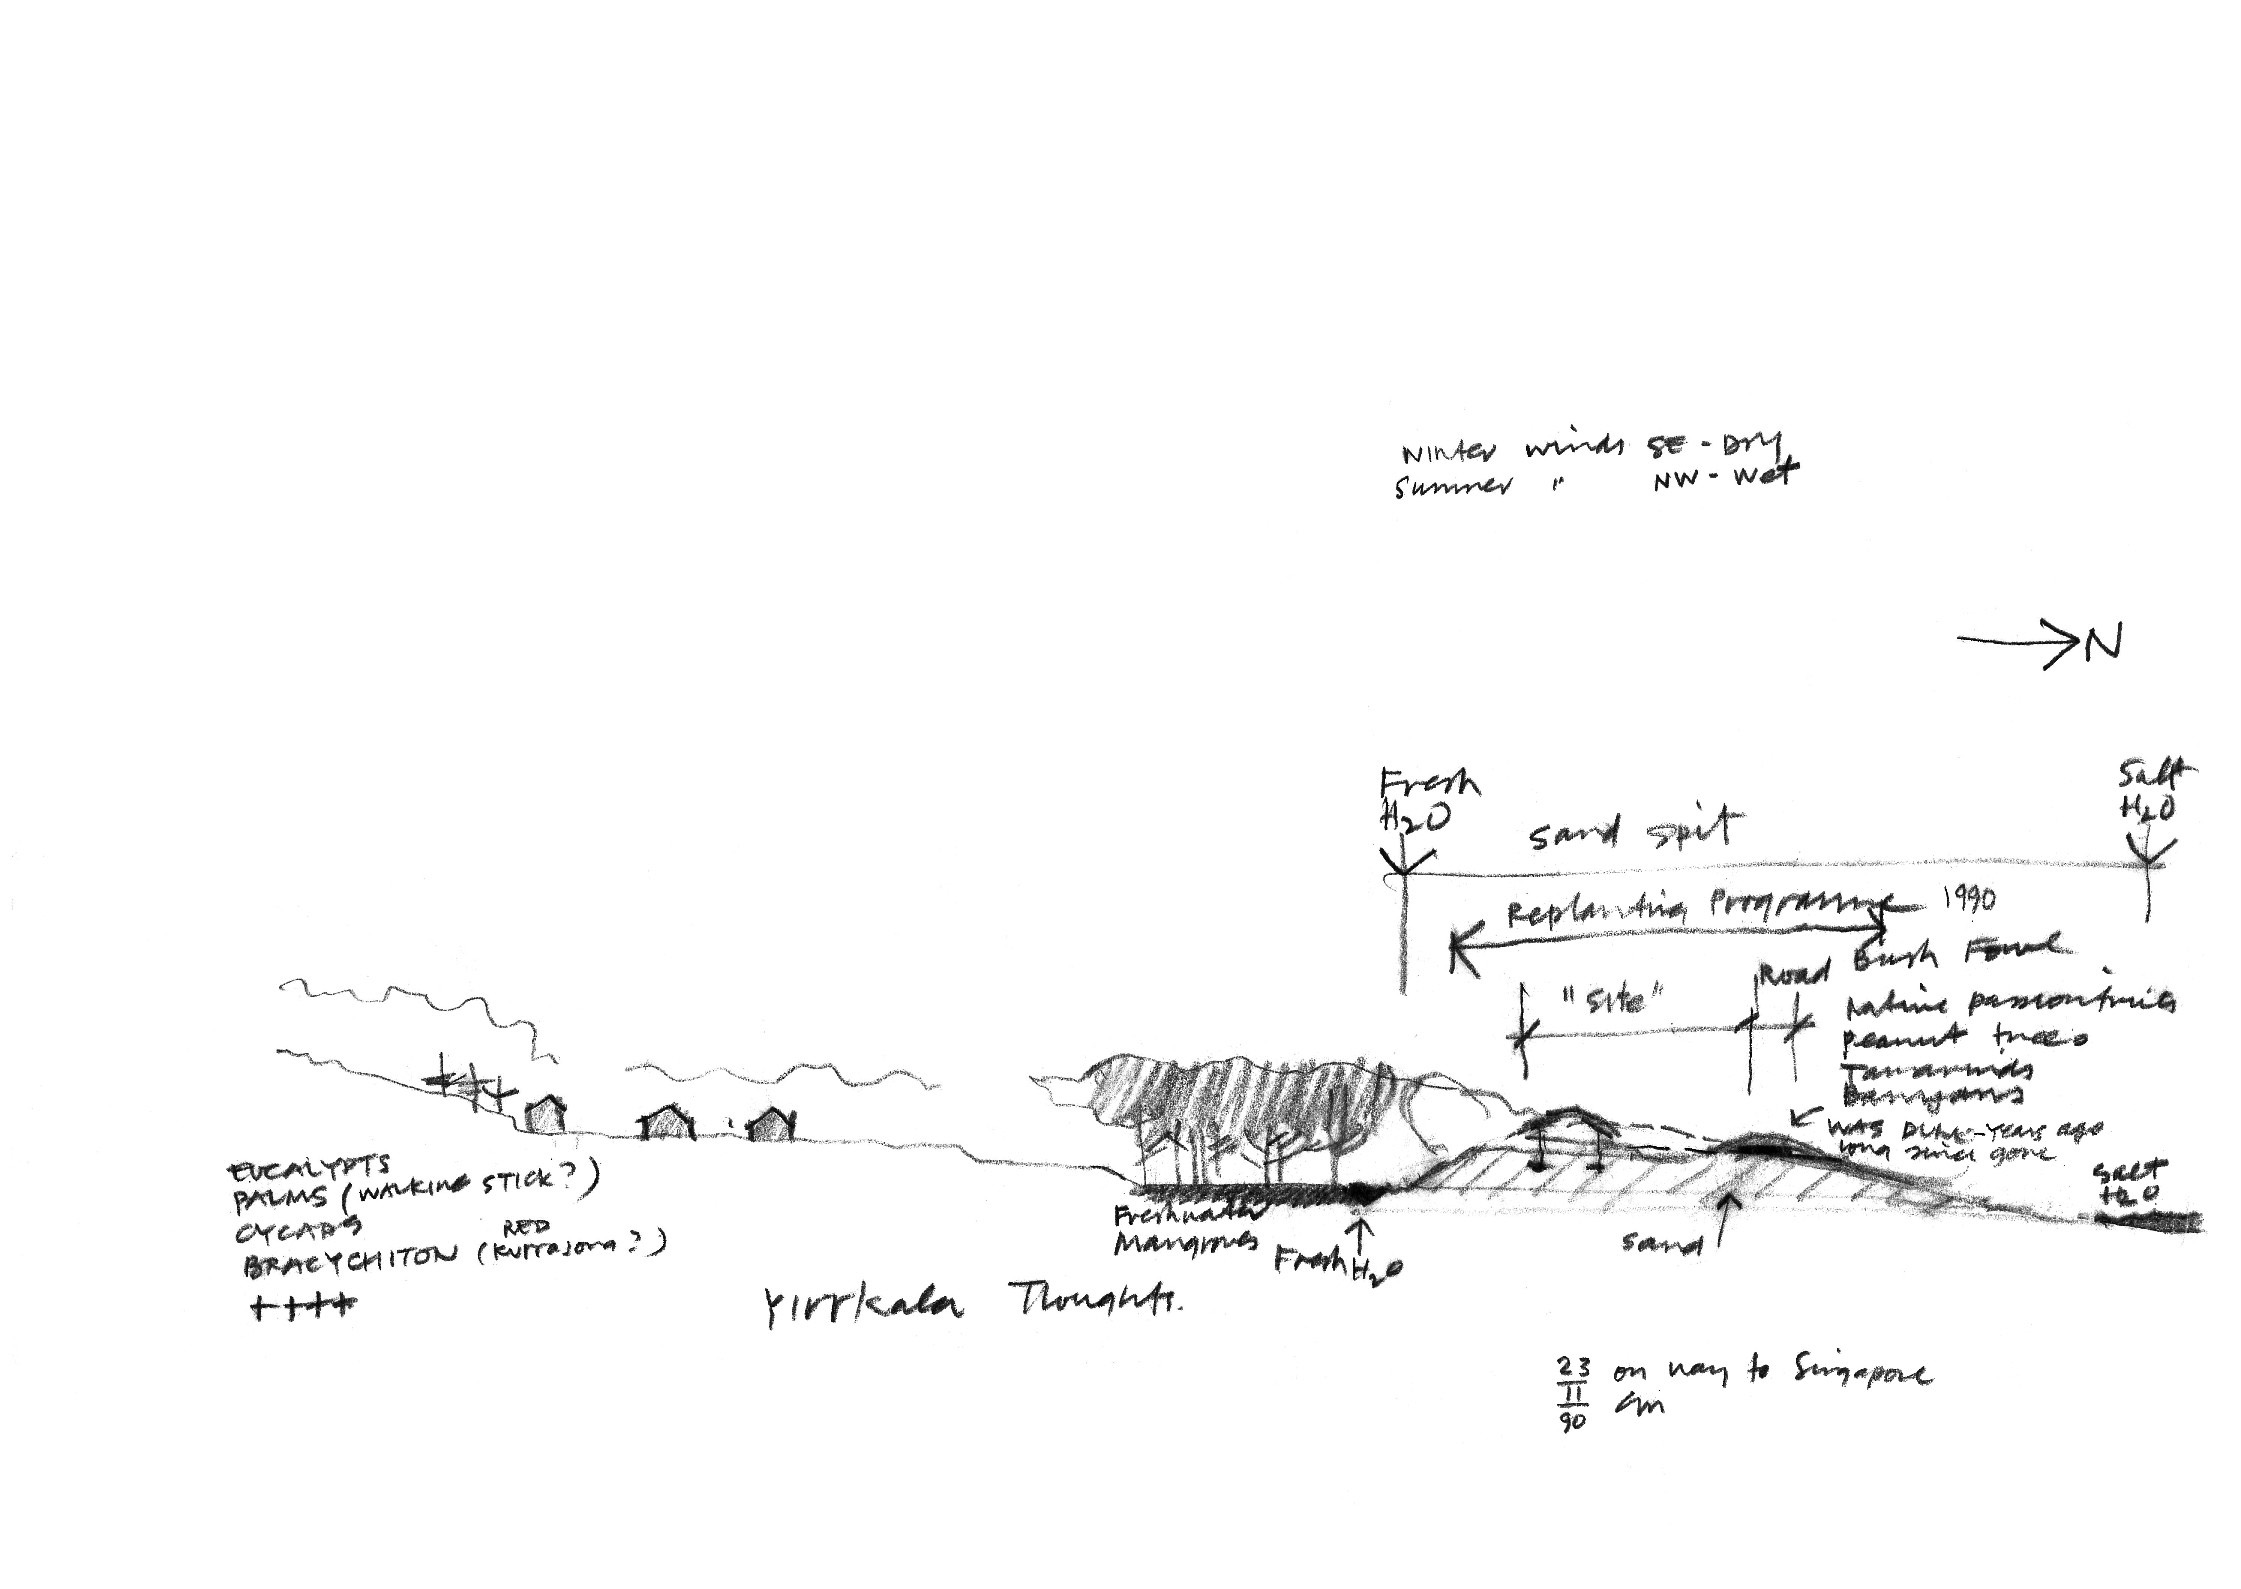 Winter winds SE - Dry
Summer " NW - Wet
N
Fresh
H2O
Salt
H2O
Sand Spit
Replanting Programme 1990
"Site"
Road
Bush Fowl
Native passionfruits
peanut trees
Tamarinds
Banyans
WAS DUNE - Years ago
long since gone
Salt
H2O
EUCALYPTS
PALMS (WALKING STICK?)
CYCADS
RED
BRACYCHITON (Kurrajong?)
++++
Freshwater
Mangroves
Fresh H2O
Sand
Yirrkala Thoughts.
23
11
90
on way to Singapore